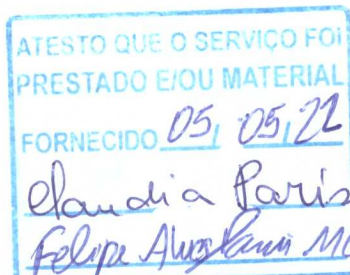 ATESTO QUE O SERVIÇO FOI
PRESTADO E/OU MATERIAL
FORNECIDO 05, 05, 22
Claudia Paris
Felipe